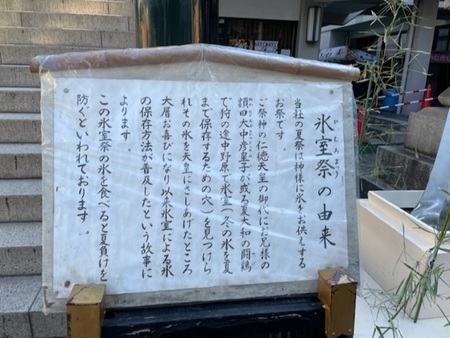 氷室祭の由来
当社の夏祭は神様に氷をお供えする
お祭です。
ご祭神の仁徳天皇の御代にお兄様の
額田大中彦皇子が或る夏大和の闘鶏
で狩の途中野原で氷室(冬の氷を夏
まで保存するための穴)を見つけら
れその氷を天皇にさしあげたところ
大層お喜びになり以来氷室による氷
の保存方法が普及したという故事に
よります。
この氷室祭の氷を食べると夏負けを
防ぐといわれております。